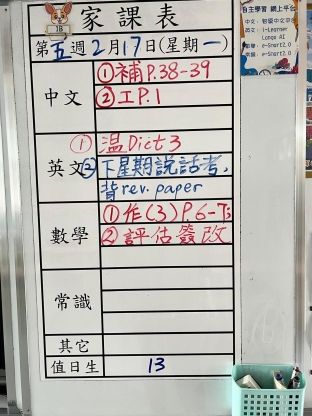 家課表
1B
第五週2月17日(星期一)
中文
①補P.38-39
②工P.1
英文
①溫Dict 3
②下星期說話考,
背rev. paper
數學
①作(3)P.6-7;
②評估簽改
常識
其它
值日生
13
自主學習 網上平台
i-Learner
Lango AI
e-Smart2.0
e-Smart2.0